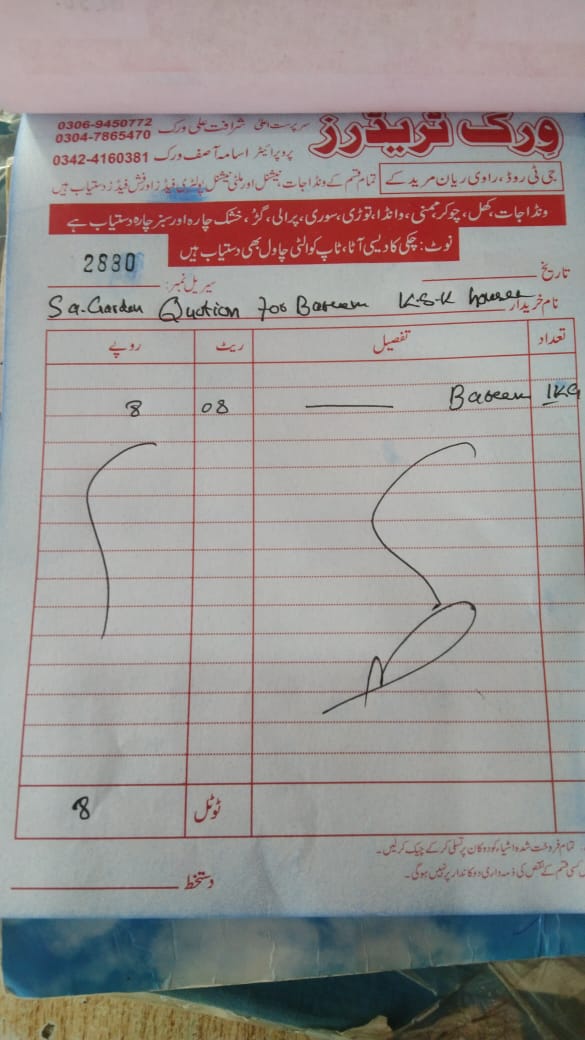 ورک ٹریڈرز
سرپرست اعلیٰ شرافت علی ورک 0306-9450772
0304-7865470
پروپرائیٹر اسامہ آصف ورک 0342-4160381
جی ٹی روڈ، راوی ریان مریدکے تمام قسم کے ونڈا جات نیشنل اور ملٹی نیشنل پولٹری فیڈز اور فش فیڈز دستیاب ہیں
ونڈا جات، کھل، چوکر، وانڈا، توڑی، سوری، پرالی، گڑ، خشک چارہ اور سبز چارہ دستیاب ہے
نوٹ: چکی کا دیسی آٹا، ٹاپ کوالٹی چاول بھی دستیاب ہیں
تاریخ سیریل نمبر: 2830
نام خریدار Sa-Garden Quotion for Barseem K.S.K house
تعداد تفصیل ریٹ روپے
1KG Barseem 08 8
ٹوٹل 8
تمام فروخت شدہ اشیاء کو دوکان پر تسلی کر کے چیک کر لیں۔
کسی قسم کے نقص کی ذمہ داری دوکاندار پر نہیں ہوگی۔
دستخط